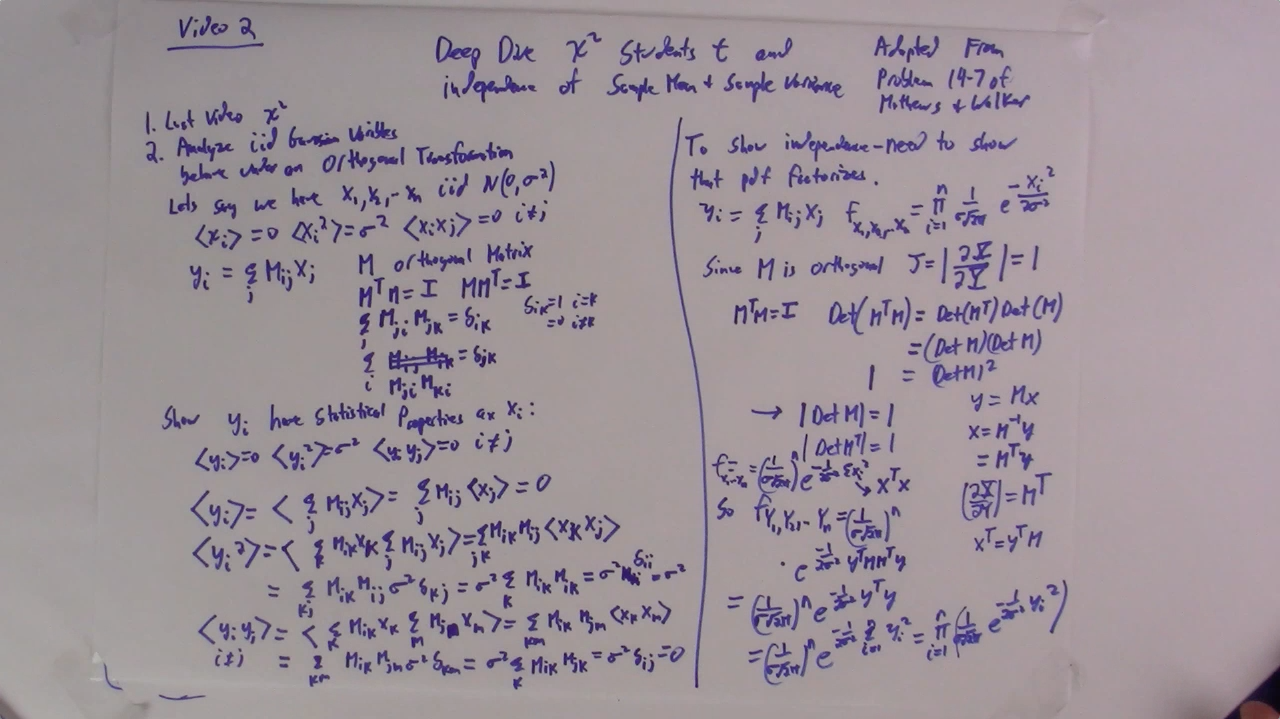 Video 2
Deep Dive χ² Students t and
independence of Sample Mean + Sample Variance
Adapted From
Problem 14-7 of
Mathews + Walker
1. Last Video χ²
2. Analyze iid Gaussian Variables
behave under an Orthogonal Transformation
Lets say we have X₁, X₂, -- Xₙ iid N(0, σ²)
<xᵢ> = 0 <xᵢ²> = σ² <xᵢxⱼ> = 0 i≠j
yᵢ = Σⱼ Mᵢⱼ Xⱼ M orthogonal Matrix
MᵀM = I MMᵀ = I
Σⱼ Mⱼᵢ Mⱼₖ = δᵢₖ δᵢₖ = 1 i=k
= 0 i≠k
Σᵢ = δⱼₖ
Mⱼᵢ Mₖᵢ
Show yᵢ have Statistical Properties as Xᵢ:
<yᵢ> = 0 <yᵢ²> = σ² <yᵢ yⱼ> = 0 i≠j
<yᵢ> = < Σⱼ Mᵢⱼ Xⱼ > = Σⱼ Mᵢⱼ <Xⱼ> = 0
<yᵢ²> = < Σₖ Mᵢₖ Xₖ Σⱼ Mᵢⱼ Xⱼ > = Σⱼₖ Mᵢₖ Mᵢⱼ <Xₖ Xⱼ>
= Σₖⱼ Mᵢₖ Mᵢⱼ σ² δₖⱼ = σ² Σₖ Mᵢₖ Mᵢₖ = σ² δᵢᵢ = σ²
<yᵢ yⱼ> = < Σₖ Mᵢₖ Xₖ Σₘ Mⱼₘ Xₘ > = Σₖₘ Mᵢₖ Mⱼₘ <Xₖ Xₘ>
i≠j = Σₖₘ Mᵢₖ Mⱼₘ σ² δₖₘ = σ² Σₖ Mᵢₖ Mⱼₖ = σ² δᵢⱼ = 0
To show independence - need to show
that pdf factorizes.
yᵢ = Σⱼ Mᵢⱼ Xⱼ f_{X₁,X₂,-Xₙ} = Π_{i=1}^{n} 1/(σ√2π) e^{-Xᵢ²/2σ²}
Since M is orthogonal J = |∂X/∂Y| = 1
MᵀM = I Det(MᵀM) = Det(Mᵀ) Det(M)
= (Det M)(Det M)
1 = (Det M)²
→ |Det M| = 1
|Det Mᵀ| = 1
y = Mx
x = M⁻¹y
= Mᵀy
(∂X/∂Y) = Mᵀ
xᵀ = yᵀM
f_{X₁-Xₙ} = (1/(σ√2π))ⁿ e^{-1/2σ² Σxᵢ²}
→ XᵀX
So f_{Y₁,Y₂,-Yₙ} = (1/(σ√2π))ⁿ
· e^{-1/2σ² yᵀMMᵀy}
= (1/(σ√2π))ⁿ e^{-1/2σ² yᵀy}
= (1/(σ√2π))ⁿ e^{-1/2σ² Σ_{i=1}^{n} yᵢ²} = Π_{i=1}^{n} (1/(σ√2π) e^{-1/2σ² yᵢ²})